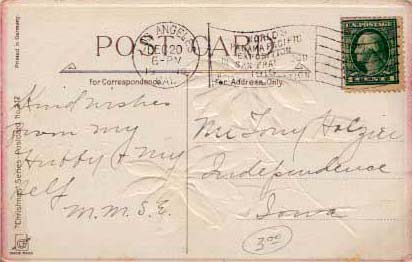 POST CARD
LOS ANGELES
DEC 20
6-PM
CAL.
WORLD'S
PANAMA PACIFIC
EXPOSITION
IN SAN FRAN
1915
1 CENT 1
For Correspondence
For Address Only.
Kind wishes
from my
Hubby & my
self
M.M.S.E.
Mr Tony
Independence
Iowa
3.00
Printed in Germany
"Christmas Series Postcard No.
TRADE MARK